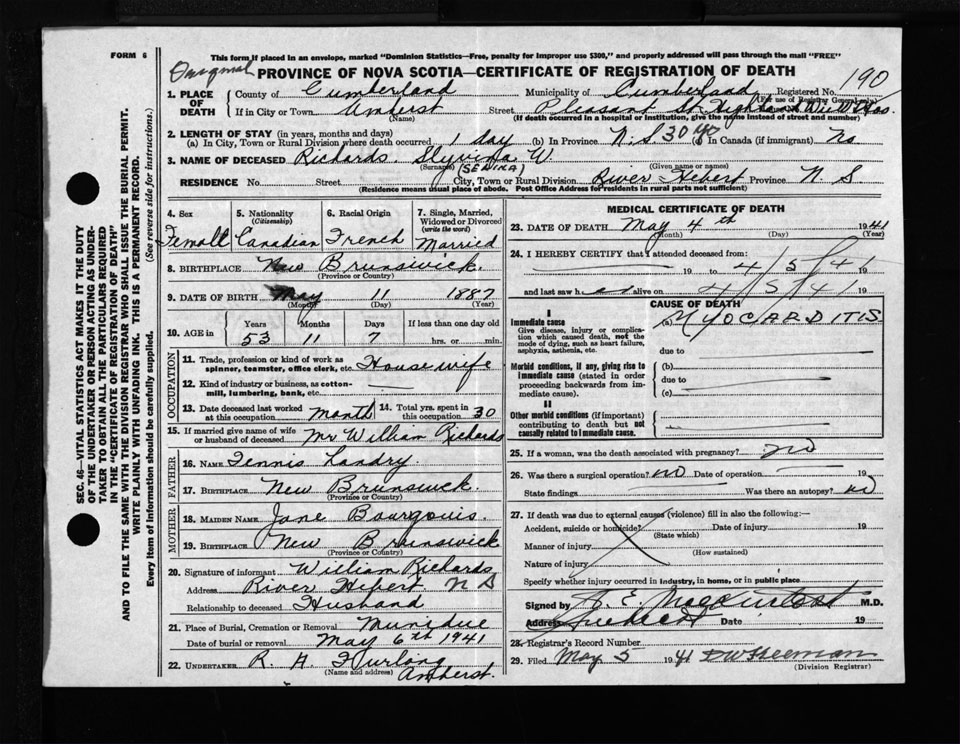 FORM 6
This form if placed in an envelope, marked "Dominion Statistics—Free, penalty for improper use $300," and properly addressed will pass through the mail "FREE"
Original
PROVINCE OF NOVA SCOTIA—CERTIFICATE OF REGISTRATION OF DEATH
190
1. PLACE OF DEATH
County of Cumberland Municipality of Cumberland Registered No.
(For use of Registrar General only)
If in City or Town Amherst Street Pleasant St. Highland View Hos.
(Name) (If death occurred in a hospital or Institution, give the name instead of street and number)
2. LENGTH OF STAY (in years, months and days)
(a) In City, Town or Rural Division where death occurred 1 day (b) In Province N.S. 30 (c) In Canada (if immigrant) No
3. NAME OF DECEASED Richards Slyvina W.
(Surname) (SEVIRA) (Given name or names)
RESIDENCE No. Street City, Town or Rural Division River Hebert Province N S.
(Residence means usual place of abode. Post Office Address for residents in rural parts not sufficient)
4. Sex
Female
5. Nationality
(Citizenship)
Canadian
6. Racial Origin
French
7. Single, Married, Widowed or Divorced
(write the word)
Married
8. BIRTHPLACE New Brunswick.
(Province or Country)
9. DATE OF BIRTH May 11 1887
(Month) (Day) (Year)
10. AGE in
Years Months Days If less than one day old
53 11 7 hrs. or min.
OCCUPATION
11. Trade, profession or kind of work as
spinner, teamster, office clerk, etc. House wife
12. Kind of industry or business, as cotton-
mill, lumbering, bank, etc.
13. Date deceased last worked
at this occupation month
14. Total yrs. spent in
this occupation 30
15. If married give name of wife
or husband of deceased Mr William Richards
FATHER
16. NAME Tennis Landry
17. BIRTHPLACE New Brunswick.
(Province or Country)
MOTHER
18. MAIDEN NAME Jane Bourgouis.
19. BIRTHPLACE New Brunswick
(Province or Country)
20. Signature of informant William Richards
Address River Hebert. N S
Relationship to deceased Husband
21. Place of Burial, Cremation or Removal Minudie
Date of burial or removal May 6th 1941
22. UNDERTAKER R. A. Furlong
(Name and address) Amherst.
MEDICAL CERTIFICATE OF DEATH
23. DATE OF DEATH May 4th 1941
(Month) (Day) (Year)
24. I HEREBY CERTIFY that I attended deceased from:
19 to 4/5/41 19
and last saw h alive on 4/5/41 19
CAUSE OF DEATH
I
Immediate cause
Give disease, injury or complica-
tion which caused death, not the
mode of dying, such as heart failure,
asphyxia, asthenia, etc.
(a) MYOCARDITIS
due to
Morbid conditions, if any, giving rise to
immediate cause (stated in order
proceeding backwards from im-
mediate cause).
(b)
due to
(c)
II
Other morbid conditions (if important)
contributing to death but not
causally related to immediate cause.
25. If a woman, was the death associated with pregnancy? no
26. Was there a surgical operation? no Date of operation 19
State findings Was there an autopsy? no
27. If death was due to external causes (violence) fill in also the following:—
Accident, suicide or homicide? Date of injury 19
(State which)
Manner of injury
(How sustained)
Nature of injury
Specify whether injury occurred in industry, in home, or in public place
Signed by A. E. Mackintosh M.D.
Address Date 19
28. Registrar's Record Number
29. Filed May 5 1941
(Division Registrar)
SEC. 46—VITAL STATISTICS ACT MAKES IT THE DUTY
OF THE UNDERTAKER OR PERSON ACTING AS UNDER-
TAKER TO OBTAIN ALL THE PARTICULARS REQUIRED
IN THE "CERTIFICATE OF REGISTRATION OF DEATH"
AND TO FILE THE SAME WITH THE DIVISION REGISTRAR WHO SHALL ISSUE THE BURIAL PERMIT.
WRITE PLAINLY WITH UNFADING INK. THIS IS A PERMANENT RECORD.
Every item of information should be carefully supplied. (See reverse side for instructions.)